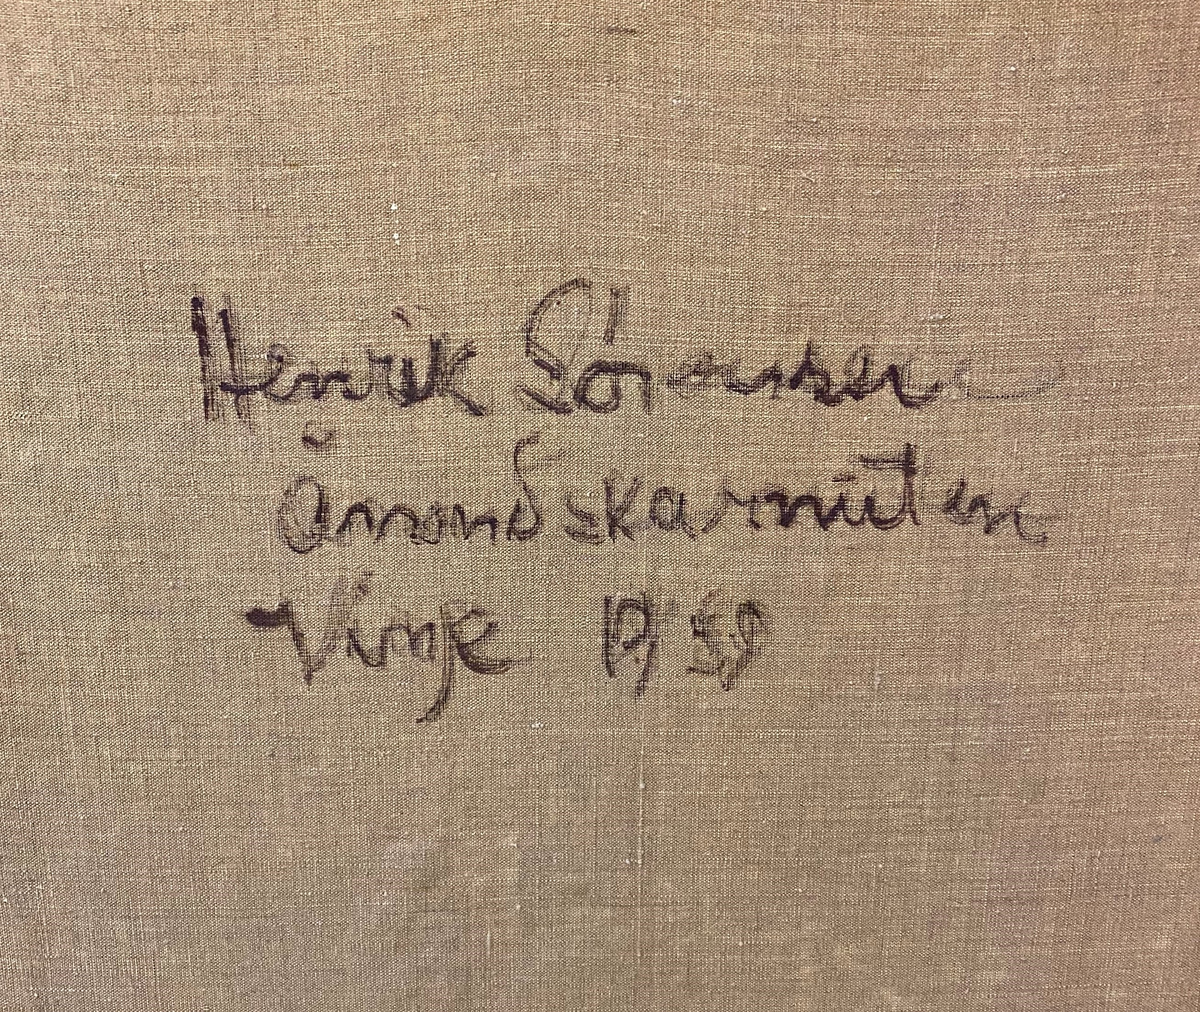 Henrik Sörensen
Åmondskarnuten
Vinje 1958